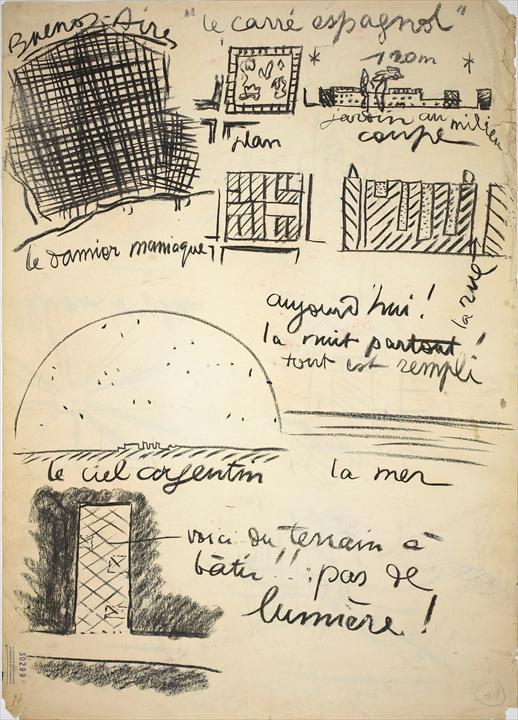 Buenos-Aires
"le carré espagnol"
120m
jardin au milieu
plan
coupe
le damier maniaque
la rue
aujourd'hui!
la nuit partout!
tout est rempli
le ciel argentin
la mer
voici du terrain à
bâtir!! : pas de
lumière!
30299